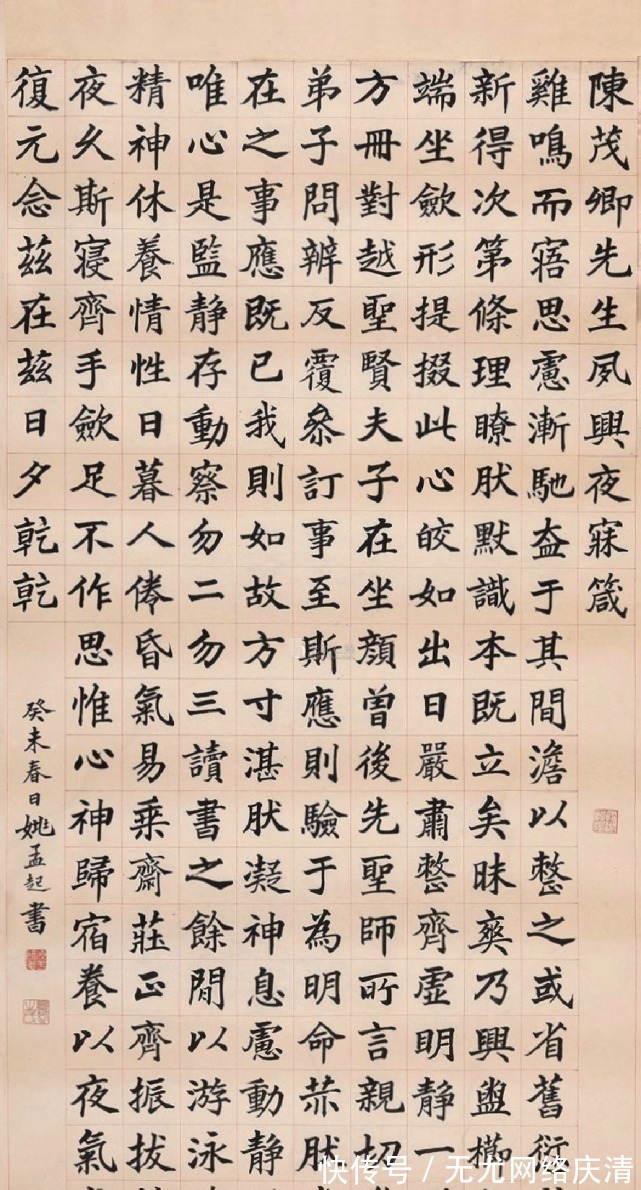 陳茂卿先生夙興夜寐箴
雞鳴而寤思慮漸馳盍于其間澹以整之或省舊衍
新得次第條理瞭肰默識本既立矣昧爽乃興盥櫛
端坐斂形提掇此心皎如出日嚴肅整齊虛明靜一
方冊對越聖賢夫子在坐顏曾後先聖師所言親切
弟子問辨反覆參訂事至斯應則驗于為明命赫肰
在之事應既已我則如故方寸湛肰凝神息慮動靜
唯心是監静存動察勿二勿三讀書之餘閒以游泳
精神休養情性日暮人倦昏氣易乘齋莊正齊振拔
夜久斯寢齊手斂足不作思惟心神歸宿養以夜氣
復元念茲在茲日夕乾乾
癸未春日姚孟起書
快传号 / 无尤网络庆清